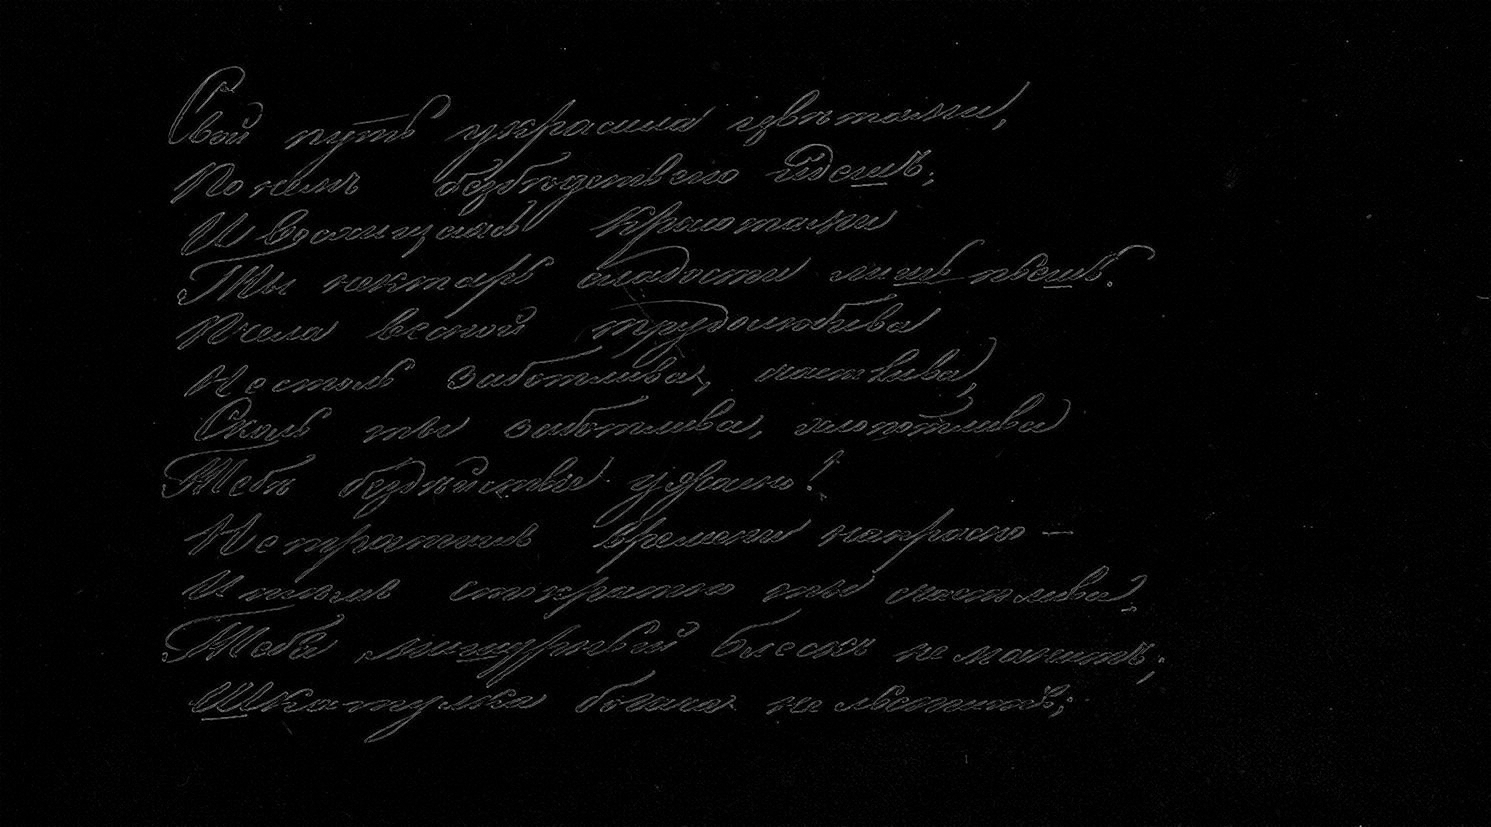 Свой путь украсила цвѣтами,
По немъ безбѣдственно идешь;
И восхищаясь красотами
Ты нектаръ сладости лишь пьешь.
Пчела весной трудолюбива
Не столь заботлива, счастлива,
Сколь ты заботлива, хлопотлива
Тебѣ бездѣйствіе ужасно!
Не тратишь времени напрасно —
И только стократно ты счастлива.
Тебя мишурный блескъ не манитъ;
Шкатулка богача не льститъ;